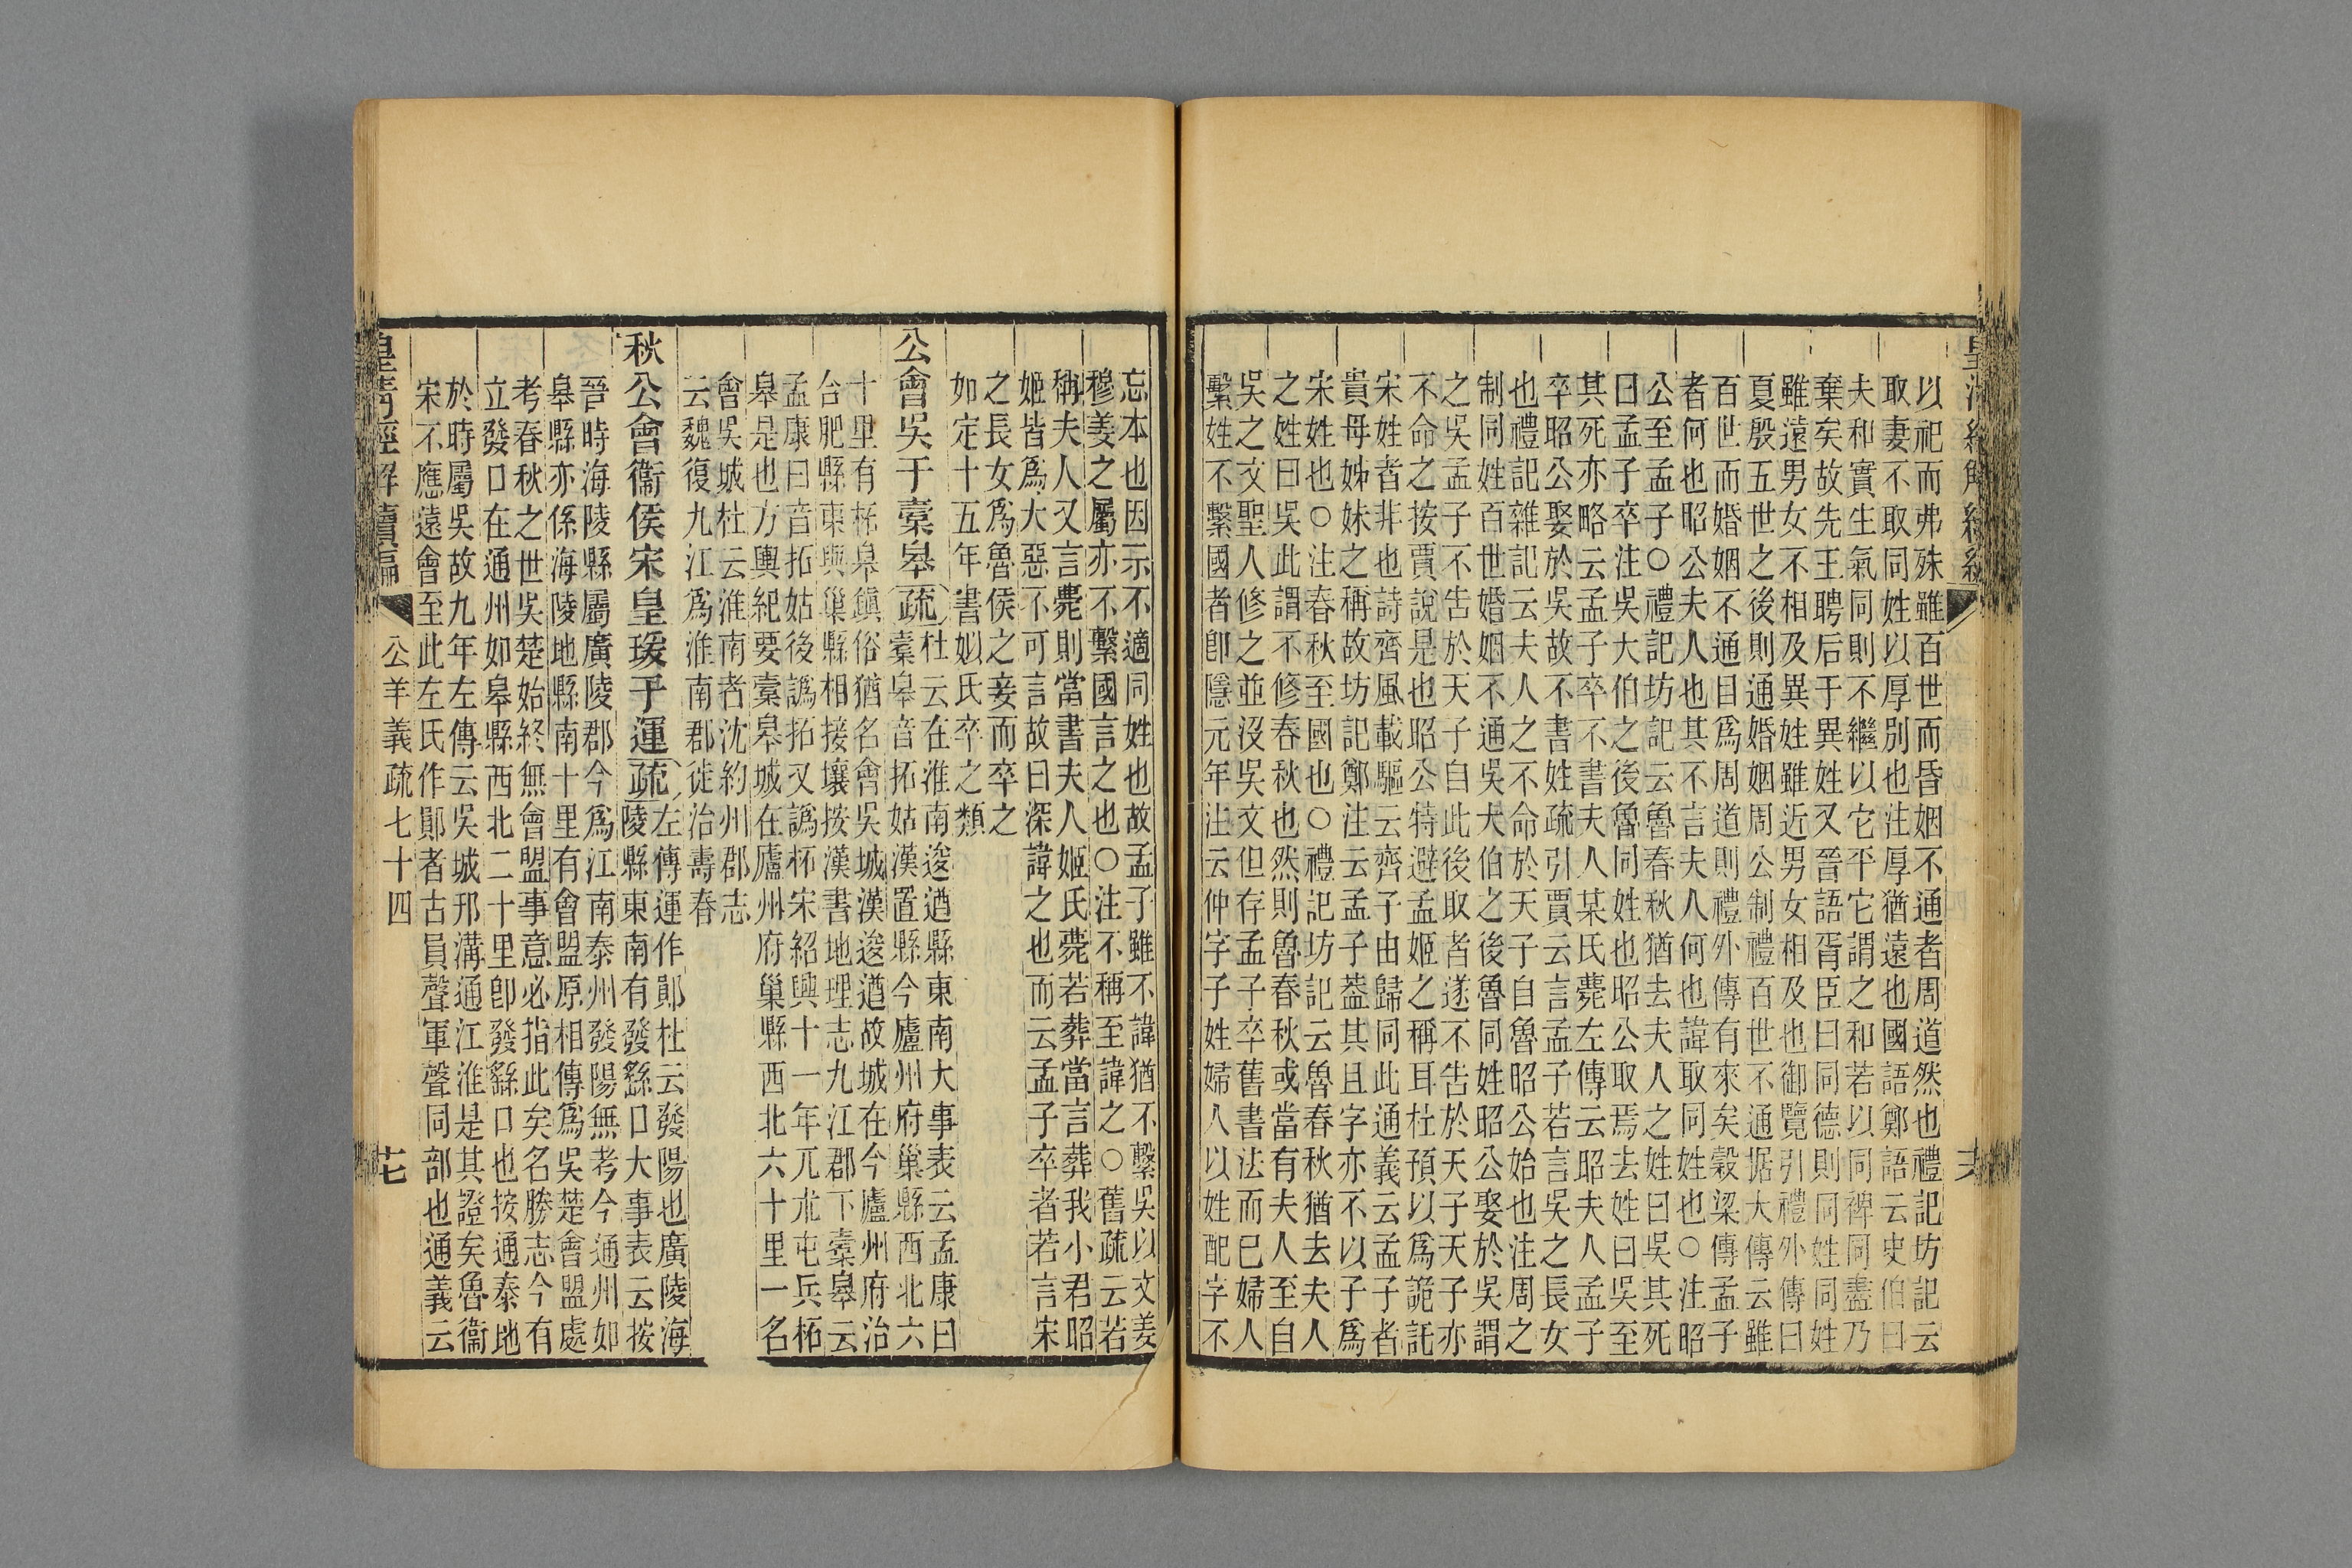 以祀而弗殊雖百世而昏姻不通者周道然也禮記坊記云
取妻不取同姓以厚別也注厚猶遠也國語鄭語云史伯曰
夫和實生氣同則不繼以它平它謂之和若以同裨同盡乃
棄矣故先王聘后于異姓又晉語胥臣曰同德則同姓同姓
雖遠男女不相及異姓雖近男女相及也御覽引禮外傳曰
夏殷五世之後則通婚姻周公制禮百世不通据大傳云雖
百世而婚姻不通目爲周道則禮外傳有來矣穀梁傳孟子
者何也昭公夫人也其不言夫人何也諱取同姓也○注昭
公至孟子○禮記坊記云魯春秋猶去夫人之姓曰吳其死
曰孟子卒注吳大伯之後魯同姓也昭公取焉去姓曰吳至
其死亦略云孟子卒不書夫人某氏薨左傳云昭夫人孟子
卒昭公娶於吳故不書姓疏引賈云言孟子若言吳之長女
也禮記雜記云夫人之不命於天子自魯昭公始也注周之
制同姓百世婚姻不通吳大伯之後魯同姓昭公娶於吳謂
之吳孟子不告於天子自此後取者遂不告於天子天子亦
不命之按賈說是也昭公特避孟姬之稱耳杜預以爲詭託
宋姓者非也詩齊風載驅云齊子由歸同此通義云孟子者
貴母姊妹之稱故坊記鄭注云孟子葢其且字亦不以子爲
宋姓也○注春秋至國也○禮記坊記云魯春秋猶去夫人
之姓曰吳此謂不修春秋也然則魯春秋或當有夫人至自
吳之文聖人修之並沒吳文但存孟子卒舊書法而已婦人
繫姓不繫國者卽隱元年注云仲字子姓婦人以姓配字不
忘本也因示不適同姓也故孟子雖不諱猶不繫吳以文姜
穆姜之屬亦不繫國言之也○注不稱至諱之○舊疏云若
稱夫人又言薨則當書夫人姬氏薨若葬當言葬我小君昭
姬皆爲大惡不可言故曰深諱之也而云孟子卒者若言宋
之長女爲魯侯之妾而卒之
如定十五年書姒氏卒之類
公會吳于橐皋疏杜云在淮南逡遒縣東南大事表云孟康曰
橐皋音拓姑漢置縣今廬州府巢縣西北六
十里有柘皋鎭俗猶名會吳城漢逡遒故城在今廬州府治
合肥縣東與巢縣相接壤按漢書地理志九江郡下橐皋云
孟康曰音拓姑後譌拓又譌柘宋紹興十一年兀朮屯兵柘
皋是也方輿紀要橐皋城在廬州府巢縣西北六十里一名
會吳城杜云淮南者沈約州郡志
云魏復九江爲淮南郡徙治壽春
秋公會衞侯宋皇瑗于運疏左傳運作鄖杜云發陽也廣陵海
陵縣東南有發繇口大事表云按
晉時海陵縣屬廣陵郡今爲江南泰州發陽無考今通州如
皋縣亦係海陵地縣南十里有會盟原相傳爲吳楚會盟處
考春秋之世吳楚始終無會盟事意必指此矣名勝志今有
立發口在通州如皋縣西北二十里卽發繇口也按通泰地
於時屬吳故九年左傳云吳城邗溝通江淮是其證矣魯衞
宋不應遠會至此左氏作鄖者古員聲軍聲同部也通義云
皇清經解續編 公羊義疏七十四